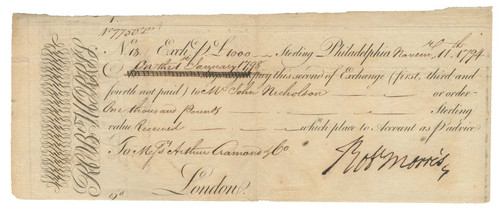 No. Exch. pr. £1000 Sterling Philadelphia 11th 1794
On the 1st January 1798 pay this second of Exchange (first, third and
fourth not paid) to Mr. John Nicholson or order
One thousand Pounds Sterling
value Received which place to Account as pr. advice
To Messrs. Arthur Cramond & Co
London
Robt Morris
ROBT. MORRIS.